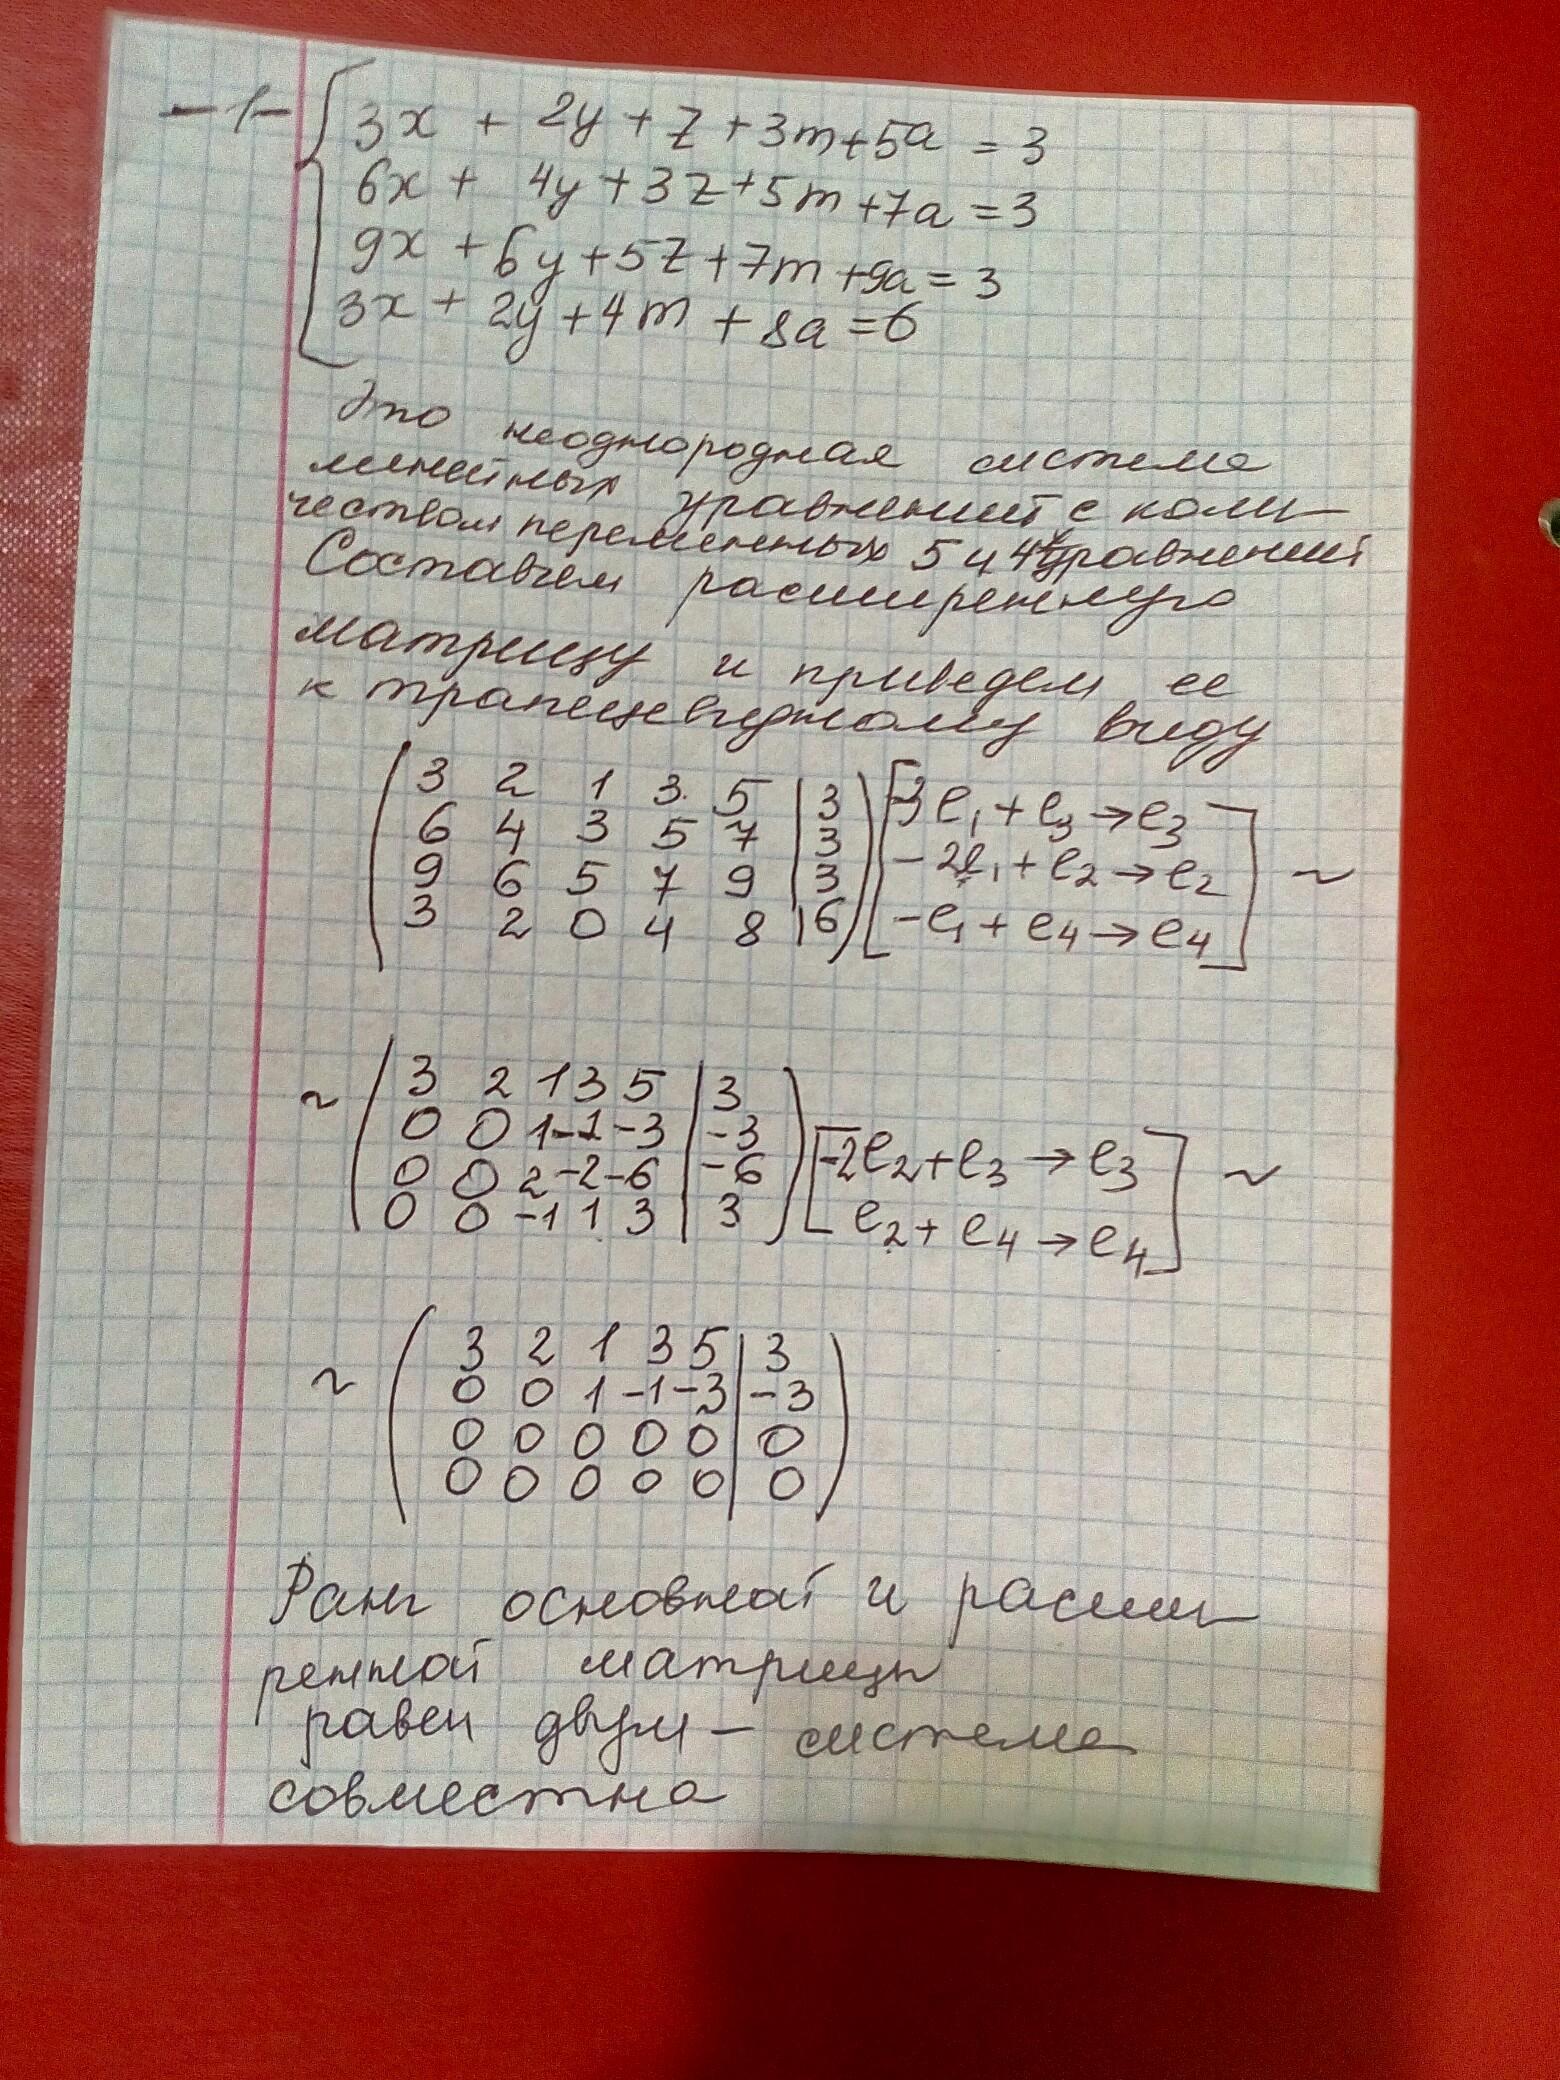 -1-
3x + 2y + z + 3m + 5a = 3
6x + 4y + 3z + 5m + 7a = 3
9x + 6y + 5z + 7m + 9a = 3
3x + 2y + 4m + 8a = 6
Это неоднородная система
линейных уравнений с коли-
чеством переменных 5 и 4 уравнений
Составием расширенную
матрицу и приведем ее
к трапециевидному виду
( 3 2 1 3 5 | 3 ) [ -3l₁ + l₃ → l₃
( 6 4 3 5 7 | 3 ) -2l₁ + l₂ → l₂ ] ~
( 9 6 5 7 9 | 3 ) -l₁ + l₄ → l₄
( 3 2 0 4 8 | 6 )
~ ( 3 2 1 3 5 | 3 )
( 0 0 1 -1 -3 | -3 ) [ -2l₂ + l₃ → l₃ ] ~
( 0 0 2 -2 -6 | -6 ) l₂ + l₄ → l₄
( 0 0 -1 1 3 | 3 )
~ ( 3 2 1 3 5 | 3 )
( 0 0 1 -1 -3 | -3 )
( 0 0 0 0 0 | 0 )
( 0 0 0 0 0 | 0 )
Ранг основной и расши-
ренной матрицы
равен двум - система
совместна